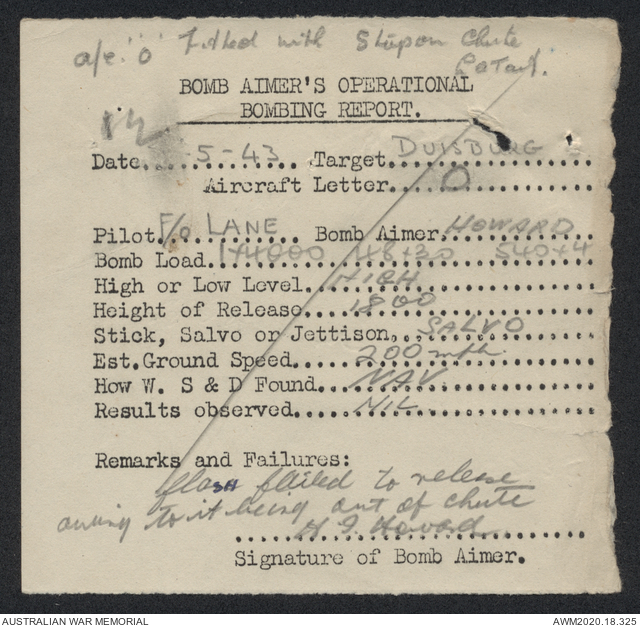 a/c 'O' fitted with Stepson Chute
BOMB AIMER'S OPERATIONAL
BOMBING REPORT.
12
Date....-5-43.... Target.DUISBURG....
Aircraft Letter....O....
Pilot.F/O LANE.... Bomb Aimer.HOWARD...
Bomb Load.1x4000 48x30 540x4
High or Low Level..HIGH....
Height of Release...1800....
Stick, Salvo or Jettison..SALVO....
Est.Ground Speed....200 mph....
How W. S & D Found...NAV....
Results observed....NIL....
Remarks and Failures:
flash failed to release
owing to it being out of chute
H J Howard
Signature of Bomb Aimer.
AUSTRALIAN WAR MEMORIAL
AWM2020.18.325